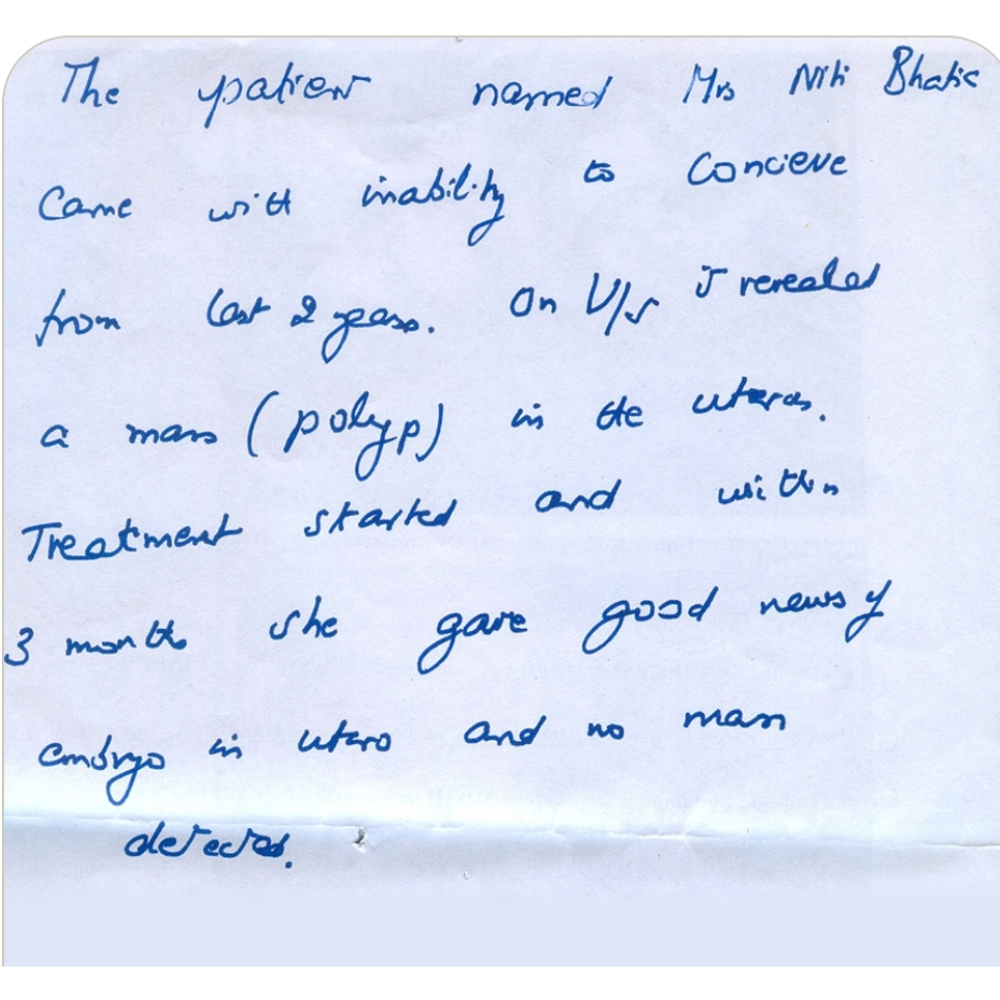 The patient named Mrs Niti Bhatia
Came with inability to Concieve
from last 2 years. On U/s it revealed
a mass (polyp) in the uterus.
Treatment started and within
3 months she gave good news of
embryo in utero and no mass
detected.